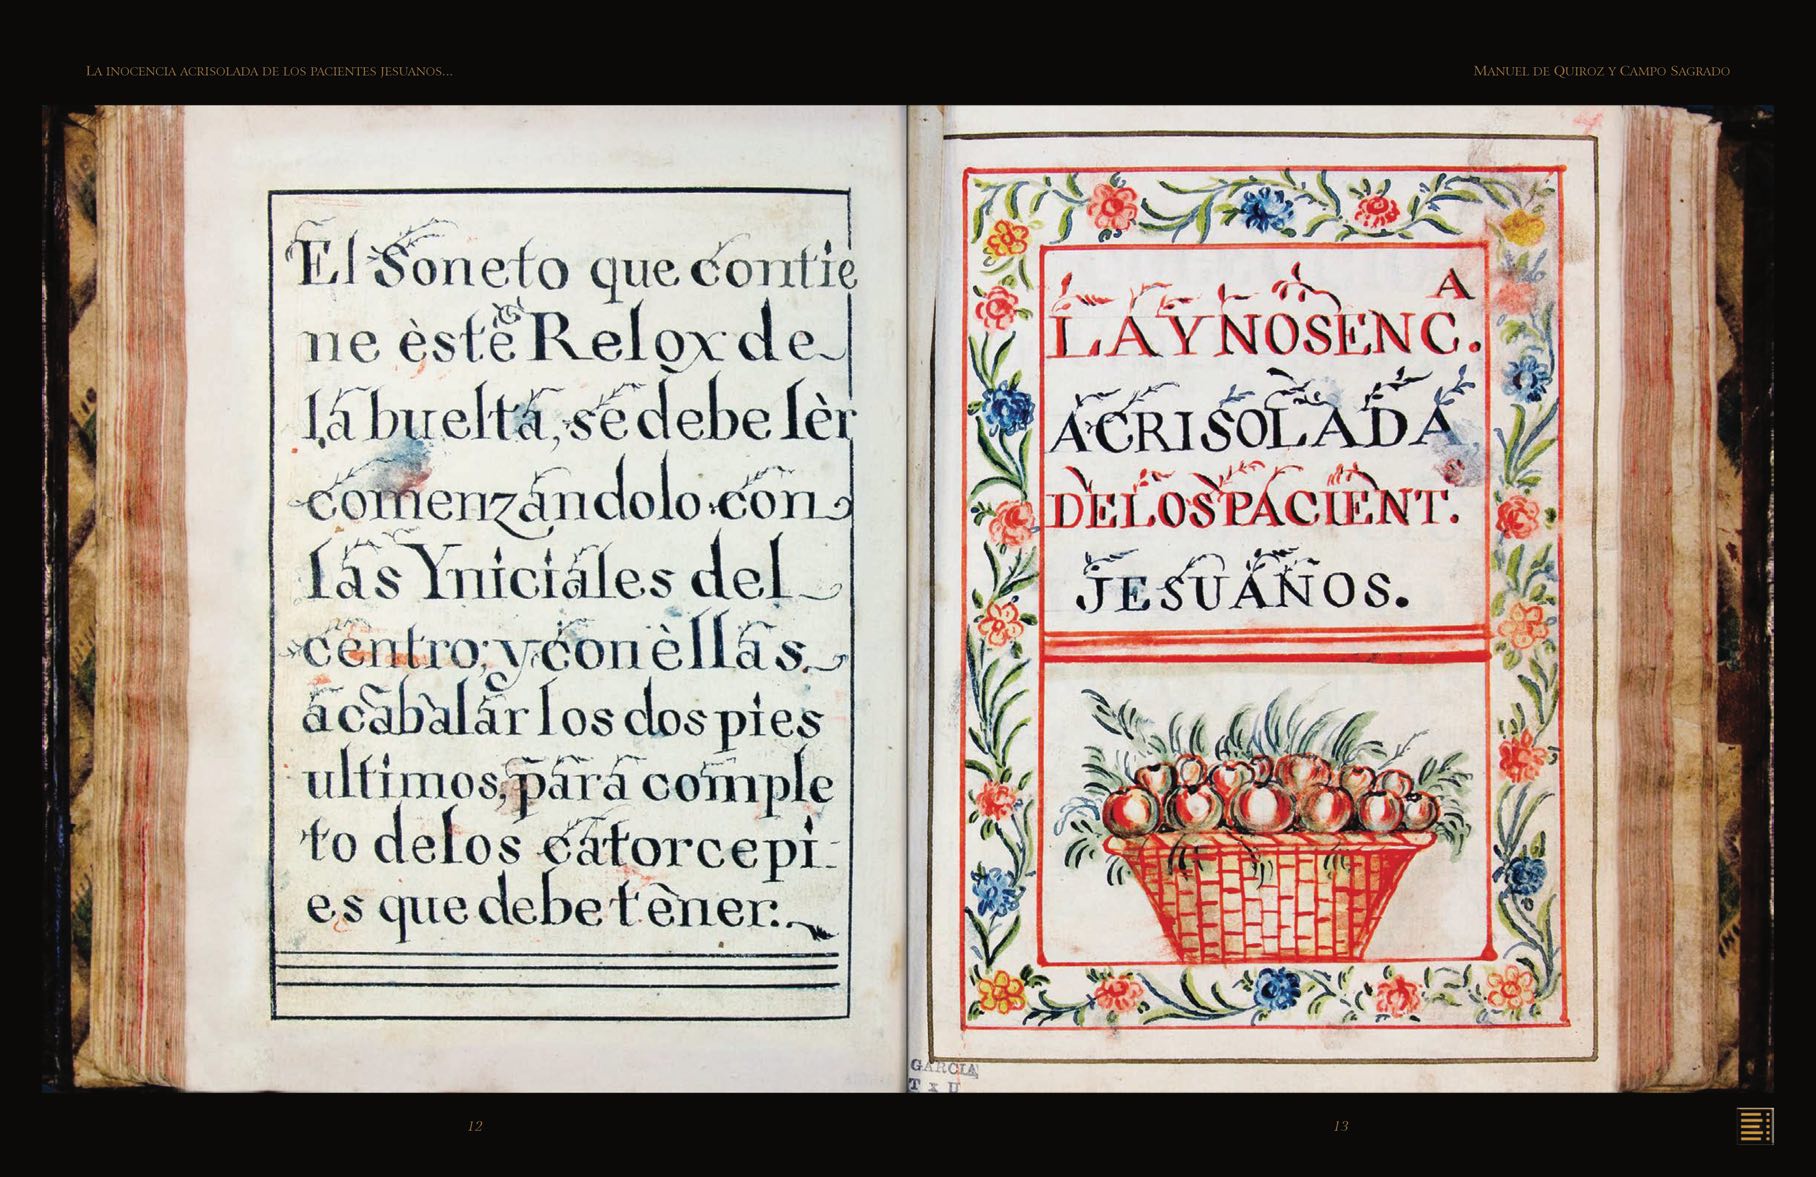 LA INOCENCIA ACRISOLADA DE LOS PACIENTES JESUANOS...
MANUEL DE QUIROZ Y CAMPO SAGRADO
El Soneto que contie
ne èste Relox de
la buelta, se debe lèr
comenzandolo con
las Yniciales del
centro; y con èllas
acabalar los dos pies
ultimos, para comple
to delos catorce pi-
es que debe tèner.
A
LA YNOSENC.
ACRISOLADA
DE LOS PACIENT.
JESUANOS.
GARCIA
T x U
12
13